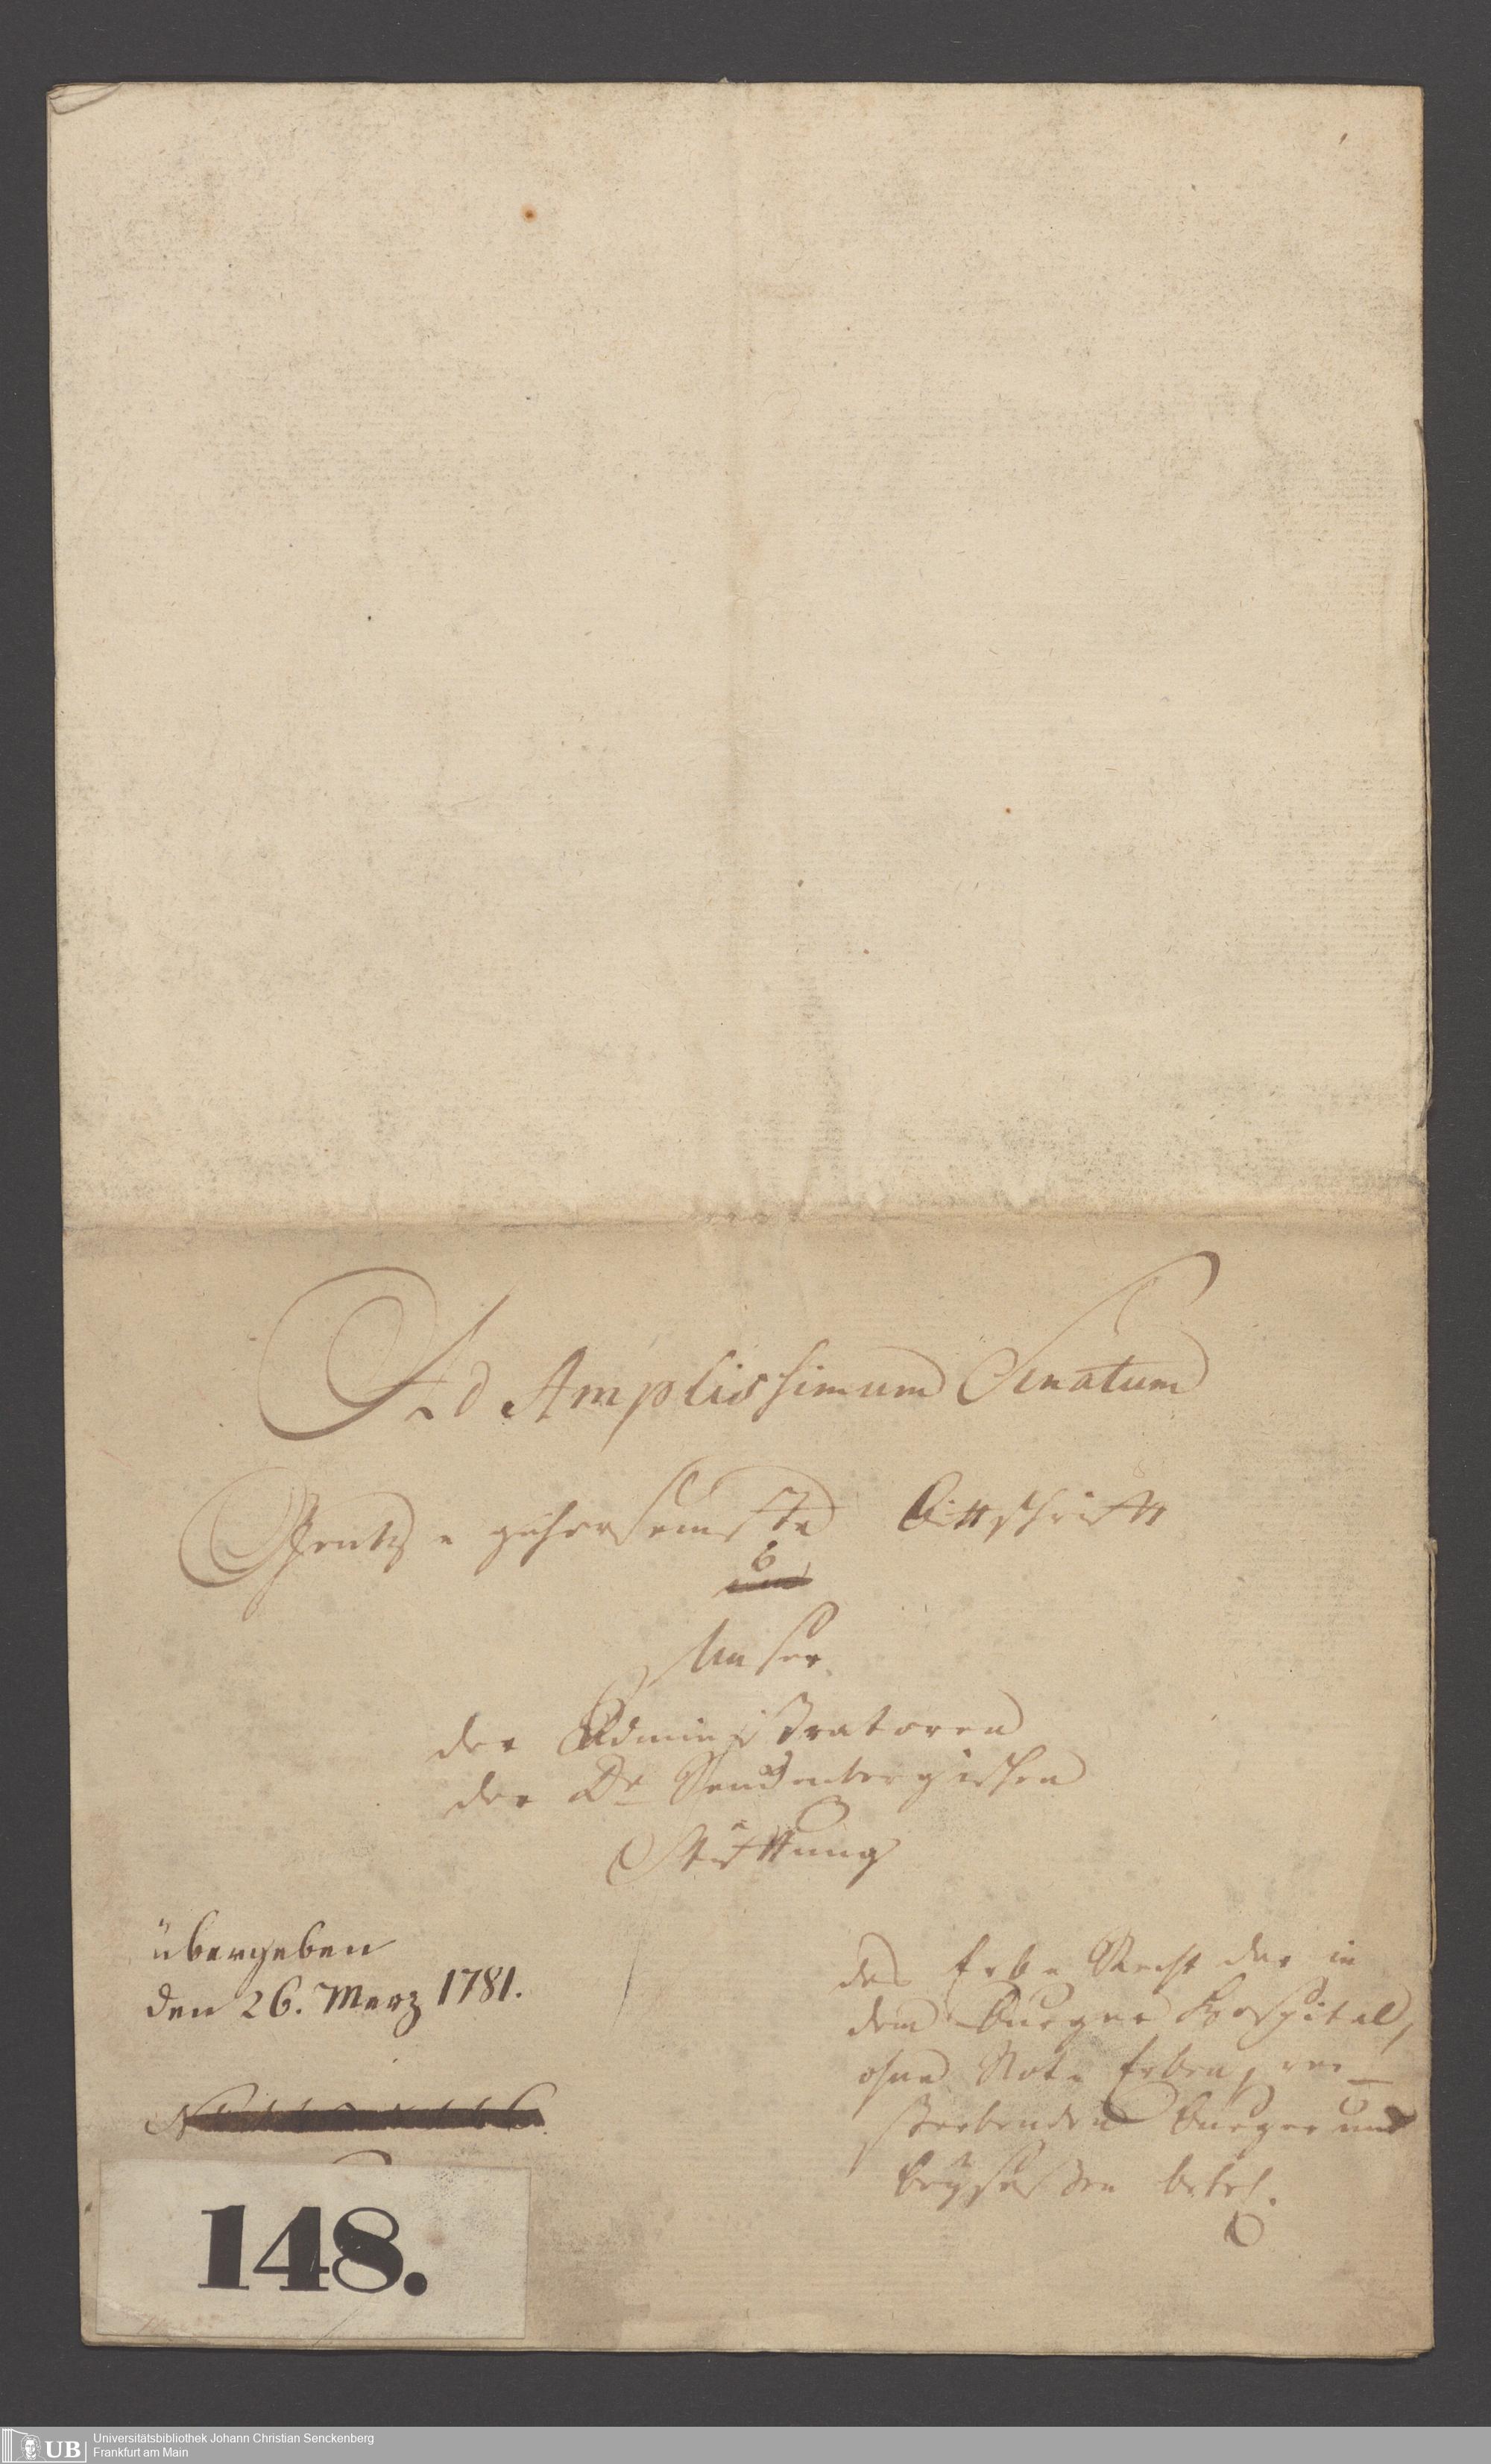 Ad Amplissimum Senatum
gehorsamste Bittschrifft
Unser
der Administratoren
der Dr Senckenbergischen
Stifftung
übergeben
den 26. Merz 1781.
das Erb Recht der in
dem Burger Hospital,
ohne Not Erben, ver
sterbenden Burger und
Beysassen betrf.
148.
UB
Universitätsbibliothek Johann Christian Senckenberg
Frankfurt am Main